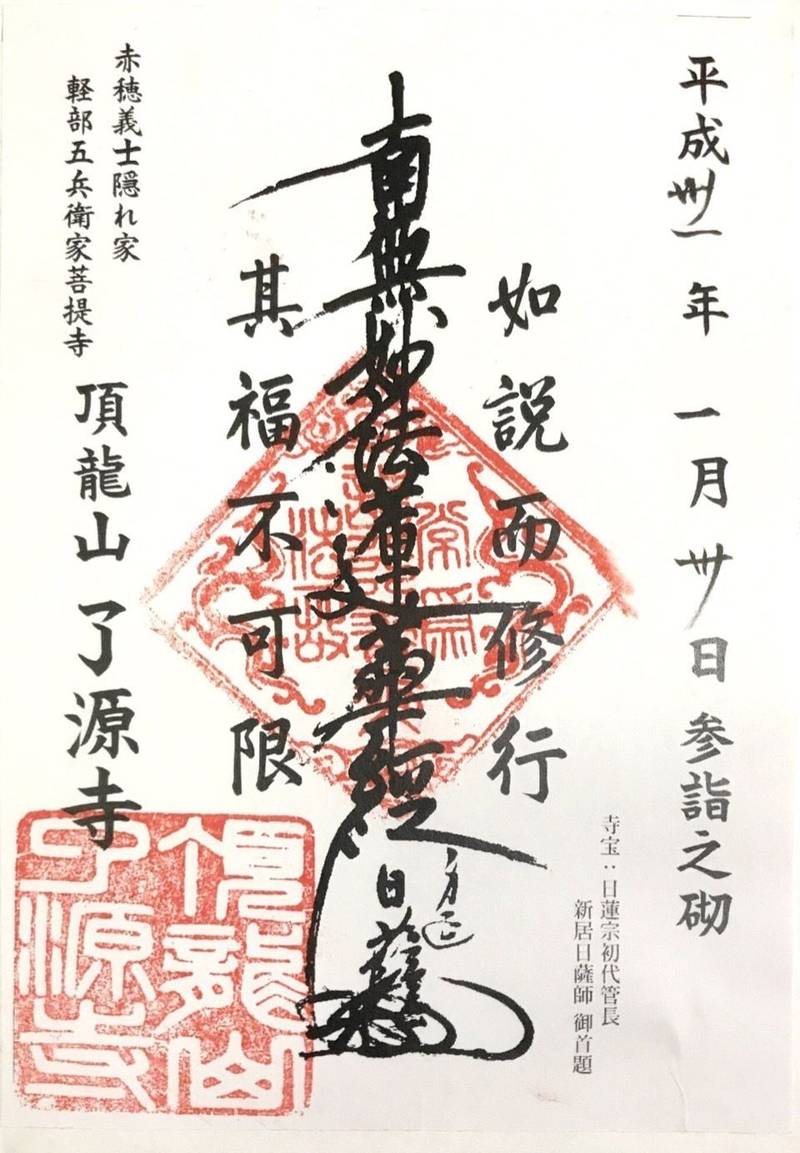 平成丗一年 一月丗日 参詣之砌
寺宝：日蓮宗初代管長
新居日薩師 御首題
如説而修行
南無妙法蓮華経
日薩
其福不可限
赤穂義士隠れ家
軽部五兵衛家菩提寺
頂龍山 了源寺
頂龍山
了源寺